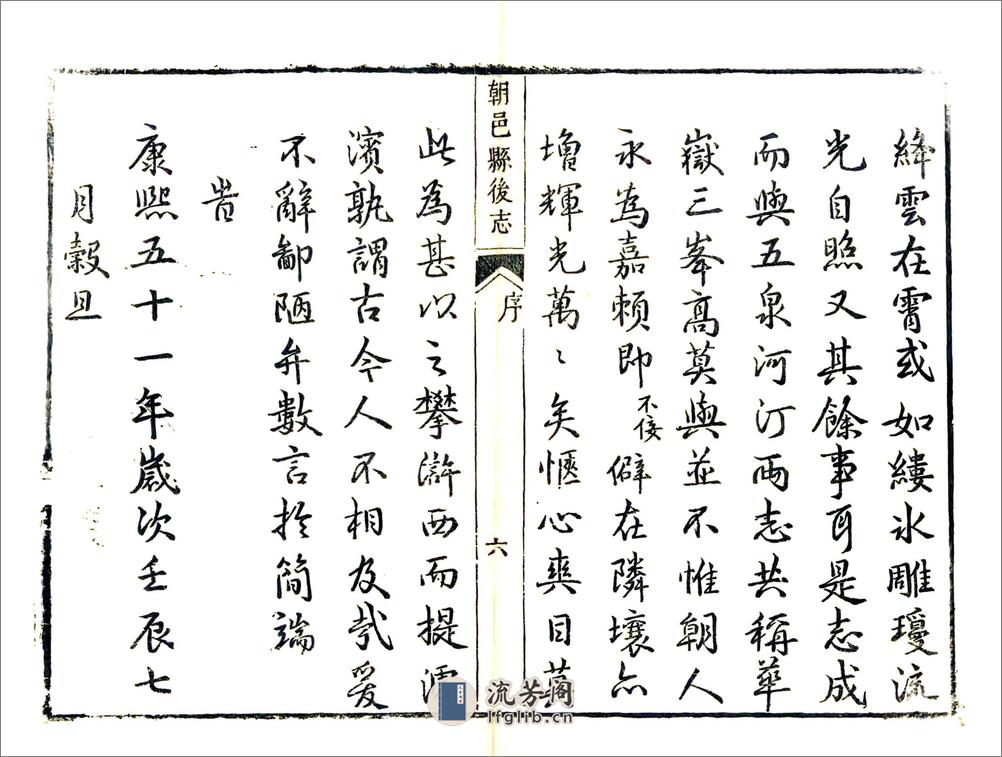 絳雲在霄或如縷氷雕瓊流
光自照又其餘事耳是志成
而與五泉河汀兩志共稱華
嶽三峯高莫與並不惟朝人
永為嘉賴即不佞僻在隣壤亦
增輝光萬〻矣愜心爽目莫
朝邑縣後志
序
六
此為甚以之攀滸西而提
濱孰謂古今人不相及哉爰
不辭鄙陋弁數言於簡端
旹
康熙五十一年歲次壬辰七
月穀旦
流芳阁
lfglib.cn